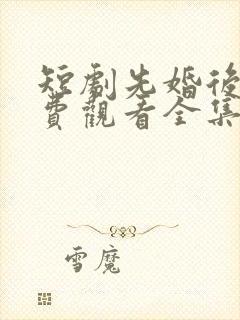 短劇先婚後
費觀看全集
雪魔